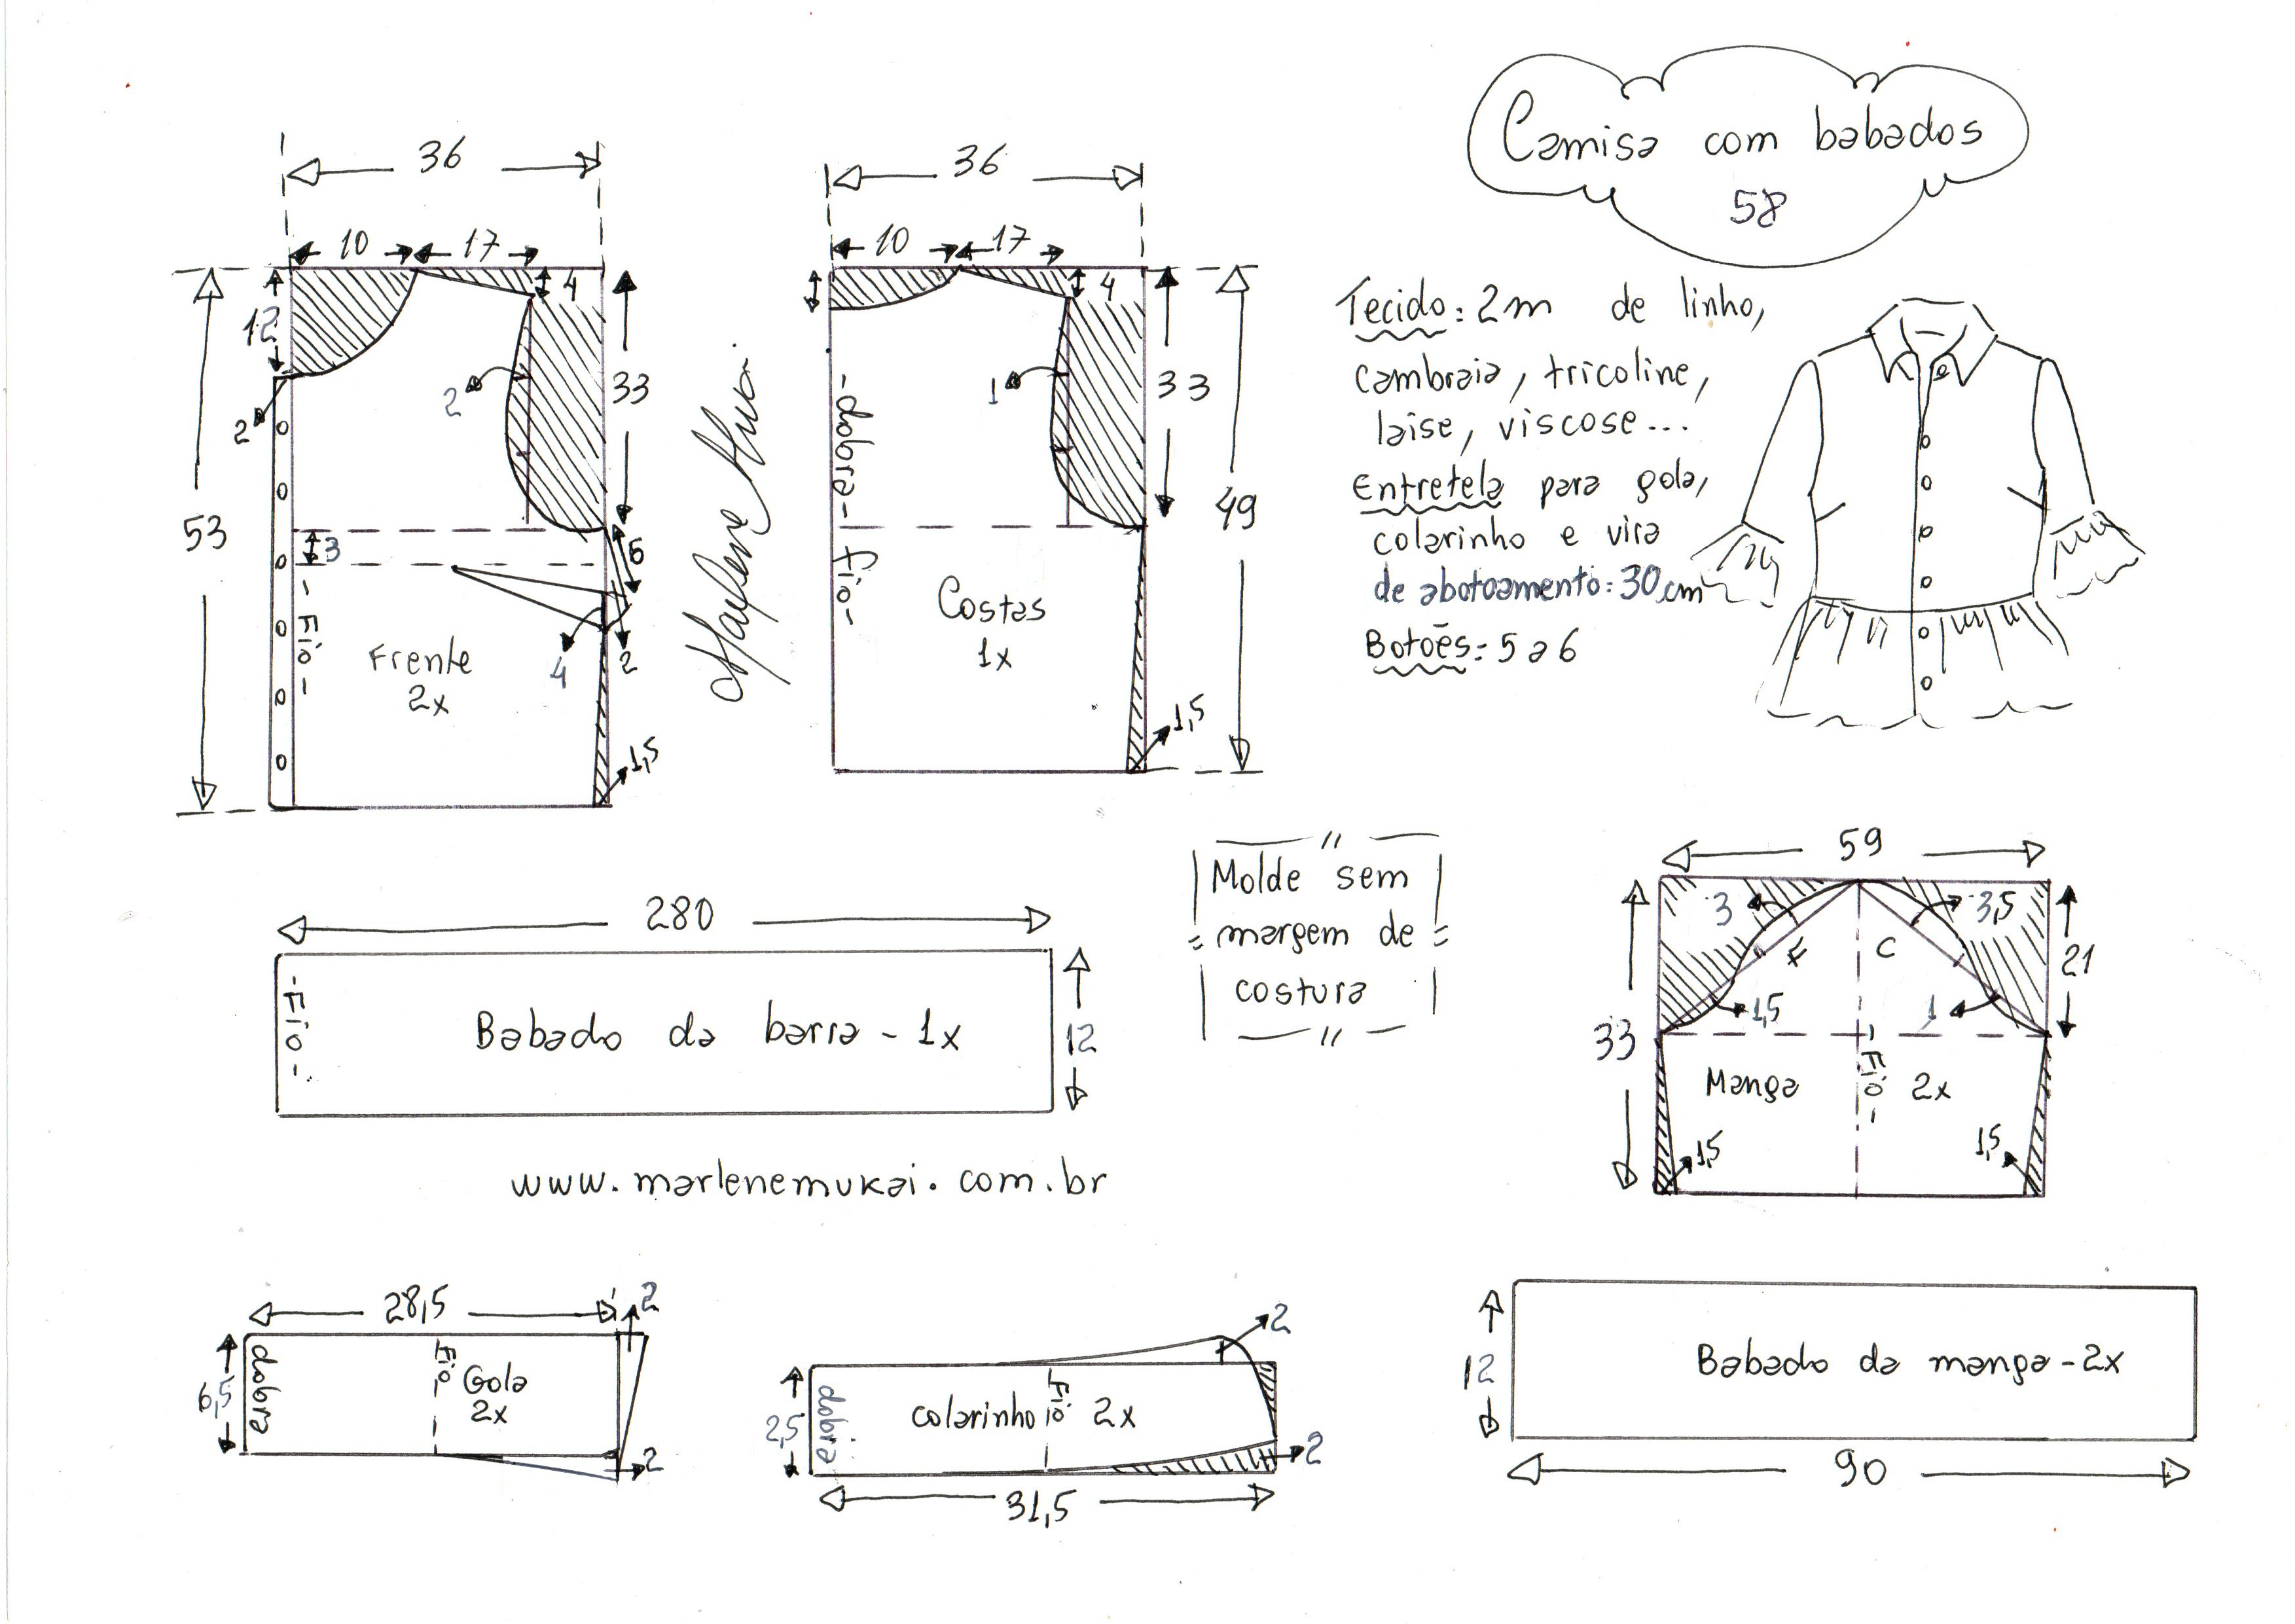 Camisa com babados
58
Tecido: 2m de linho,
cambraia, tricoline,
laise, viscose...
Entretela para gola,
colarinho e vira
de abotoamento: 30cm
Botões: 5 a 6
36
10 17
4
12
2
2
33
53
3
6
-Fio-
Frente
2x
4
2
1,5
36
10 17
4
1
33
49
-dobra-
fio-
Costas
1x
1,5
280
-Fio-
Babado da barra - 1x
12
www.marlenemukai.com.br
Molde sem
margem de
costura
59
3
3,5
F
C
21
1,5
1
33
Manga
-Fio-
2x
1,5
1,5
28,5
2
6,5
dobra
Fio
Gola
2x
2
2
2,5
dobra
colarinho
Fio
2x
2
31,5
12
Babado da manga - 2x
90